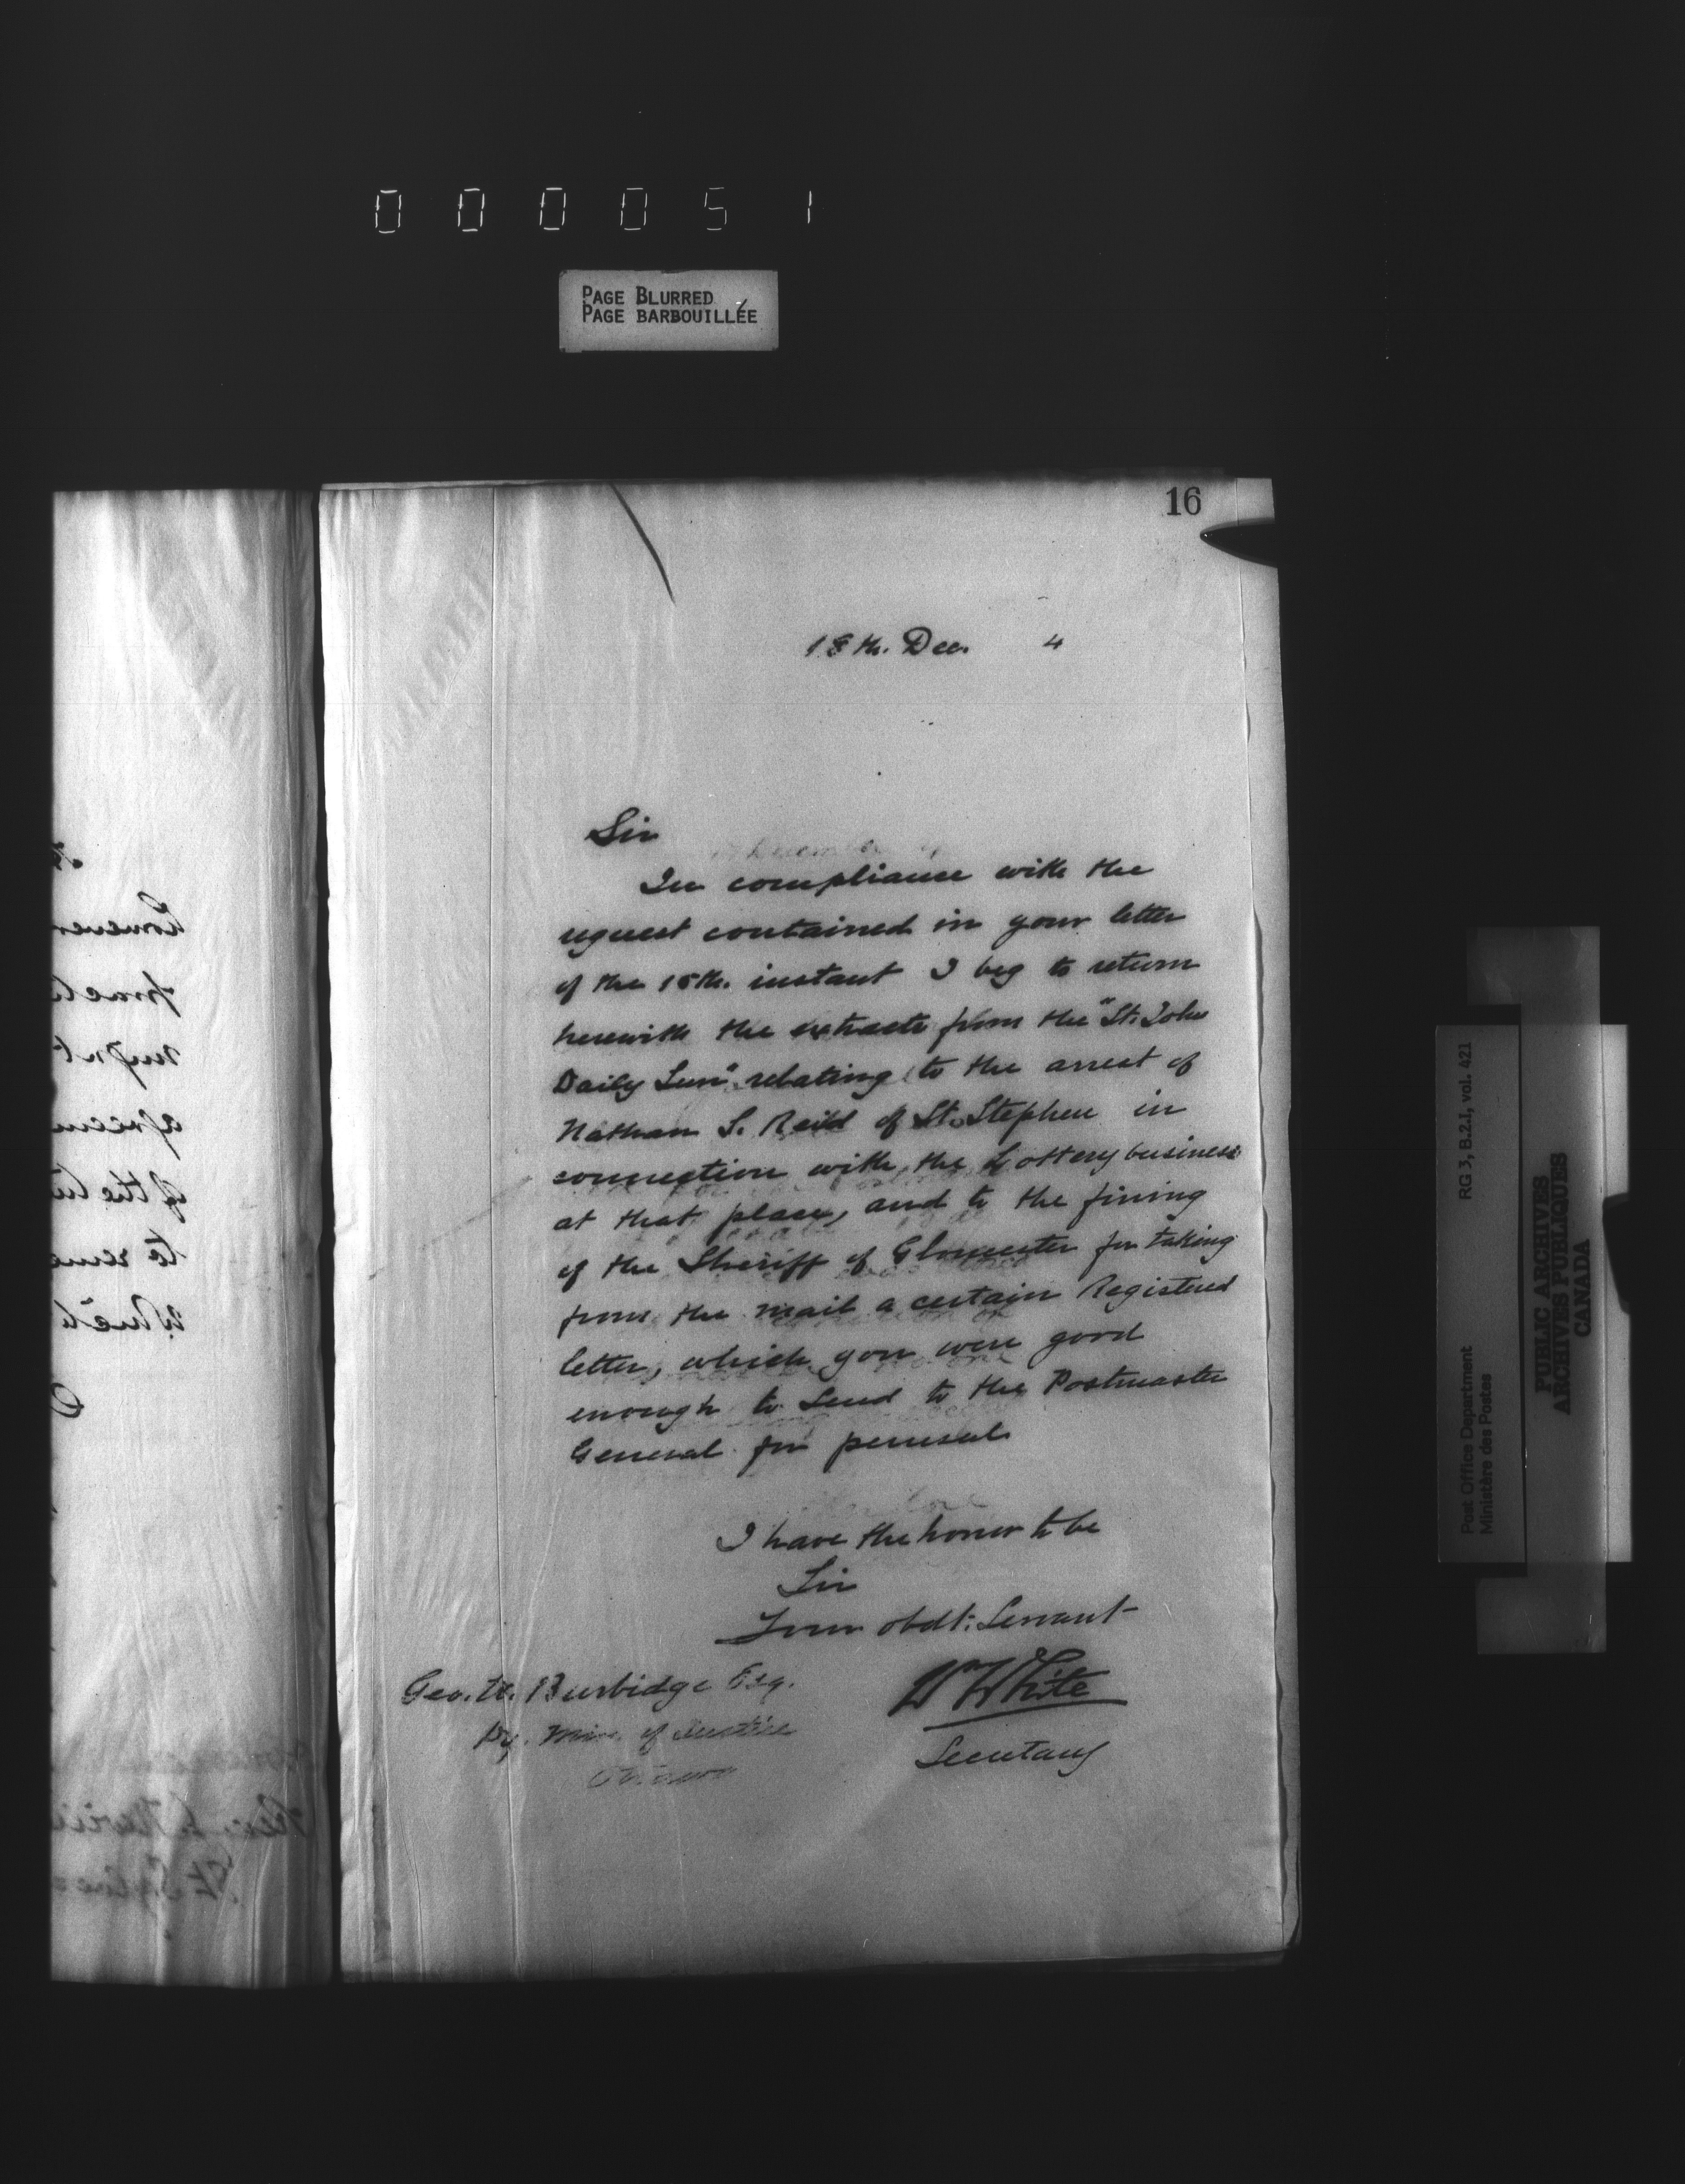 000051
PAGE BLURRED
PAGE BARBOUILLÉE
16
18th. Dec. 4
Sir
In compliance with the
request contained in your letter
of the 15th. instant I beg to return
herewith the extracts from the "St. John
Daily Sun" relating to the arrest of
Nathan S. Reid of St. Stephen in
connection with the Lottery business
at that place, and to the fining
of the Sheriff of Gloucester for taking
from the mail a certain Registered
letter, which you were good
enough to send to the Postmaster
General for perusal
I have the honor to be
Sir
Your obdt: Servant
Wm White
Secretary
Geo. W. Burbidge Esq.
Dy. Min. of Justice
Ottawa
RG 3, B.2.1, vol. 421
Post Office Department
Ministère des Postes
PUBLIC ARCHIVES
ARCHIVES PUBLIQUES
CANADA